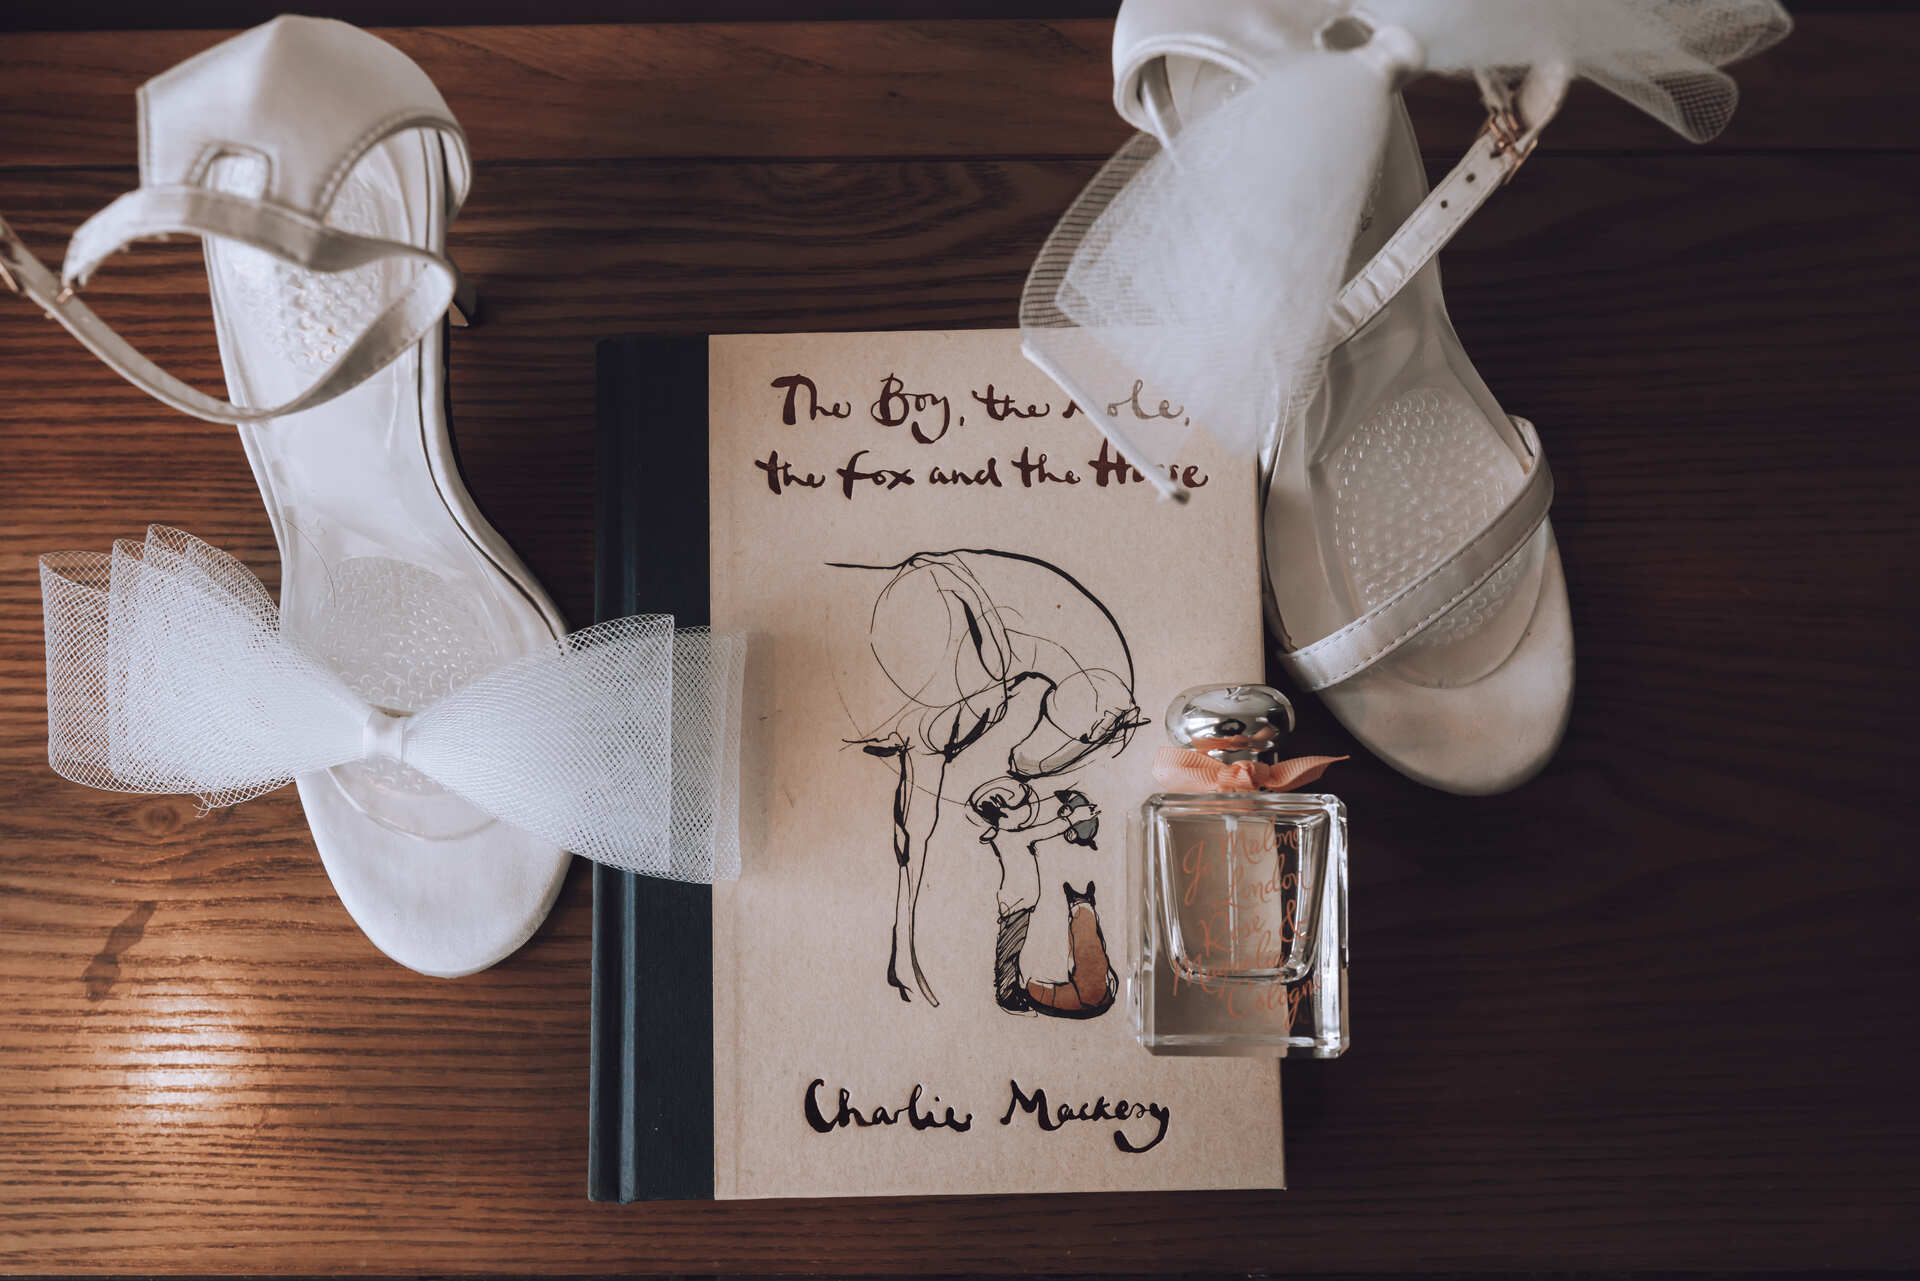 The Boy, the Mole,
the fox and the Horse
Charlie Mackesy
Jo Malone
London
Rose &
Magnolia
Cologne